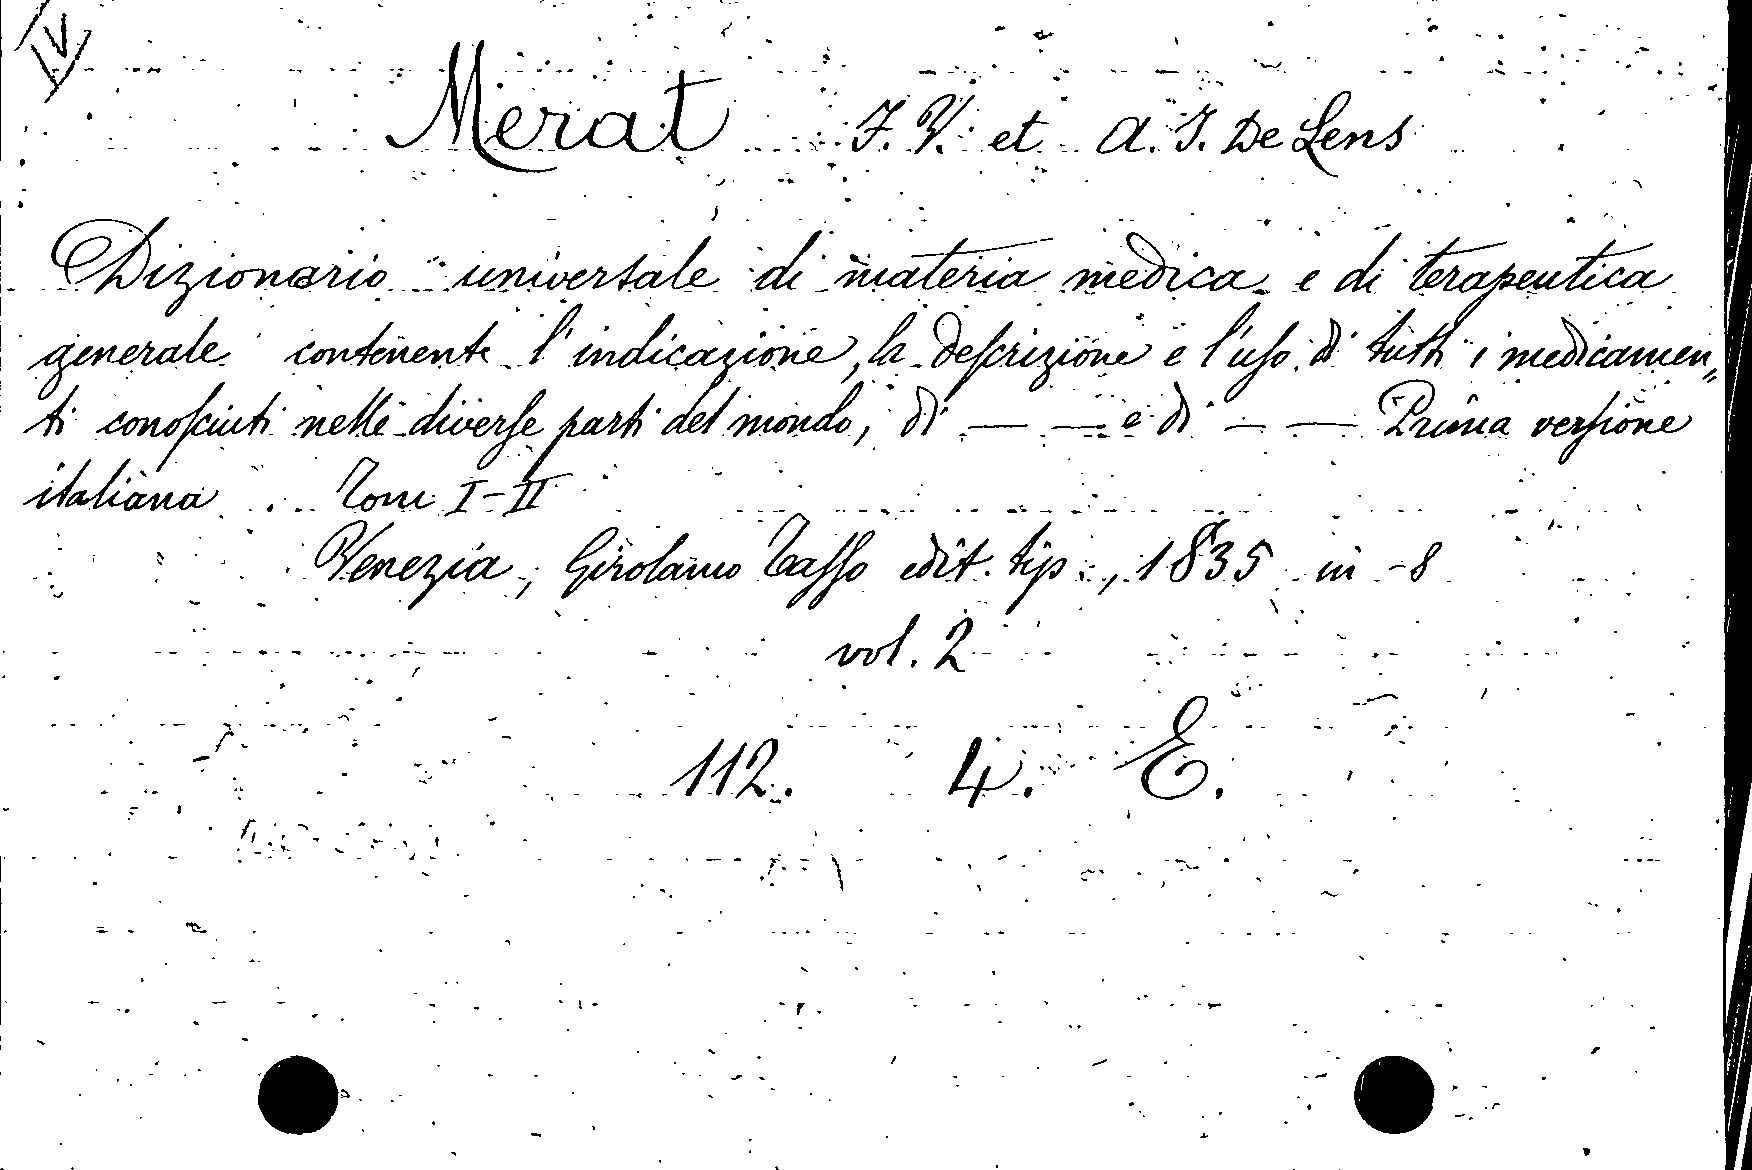 IV
Merat F. V. et A. J. De Lens
Dizionario universale di materia medica e di terapeutica
generale contenente l'indicazione, la descrizione e l'uso di tutti i medicamen„
ti conosciuti nelle diverse parti del mondo, di — — e di — — Prima versione
italiana. Tom I-II
Venezia, Girolamo Tasso edit. tip., 1835 in-8
vol. 2
112. 4. E.